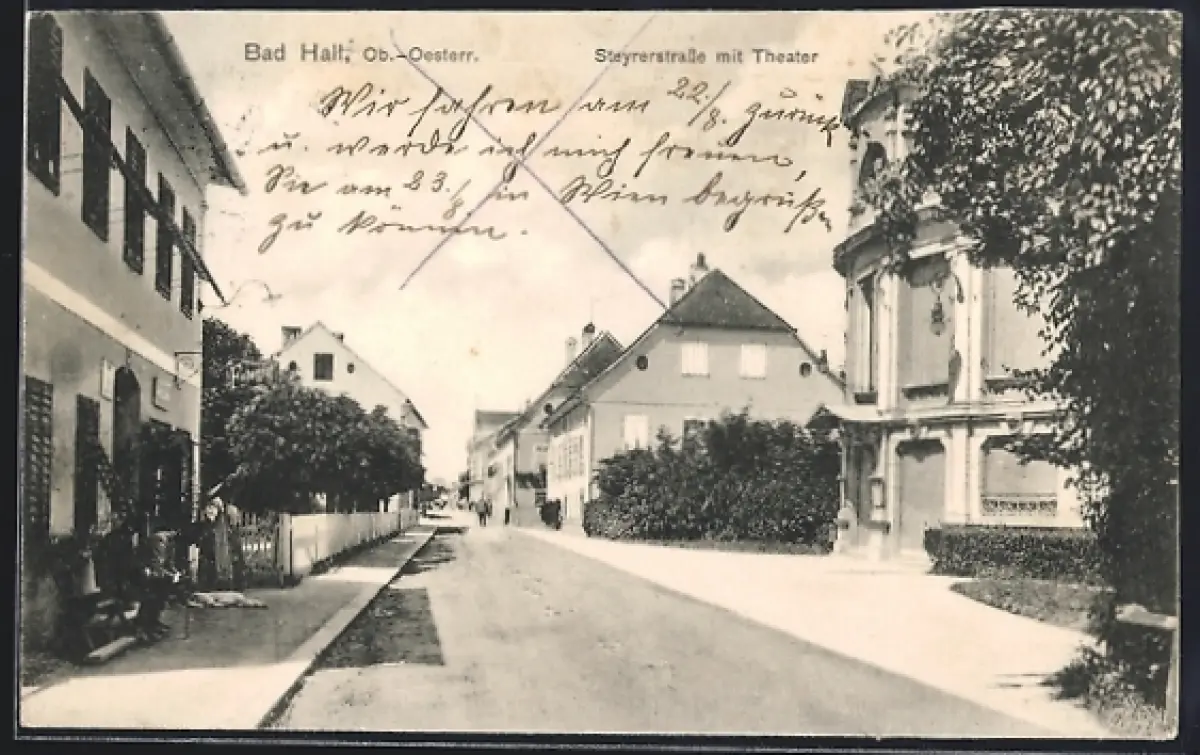 Bad Hall, Ob.-Oesterr. Steyrerstraße mit Theater
Wir fahren am 22/8. zurück
u. werde ich mich freuen,
Sie am 23/8 in Wien begrüßen
zu können.